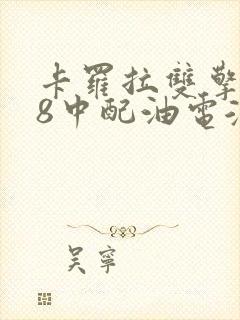 卡羅拉雙擎
8中配油電
吳寧